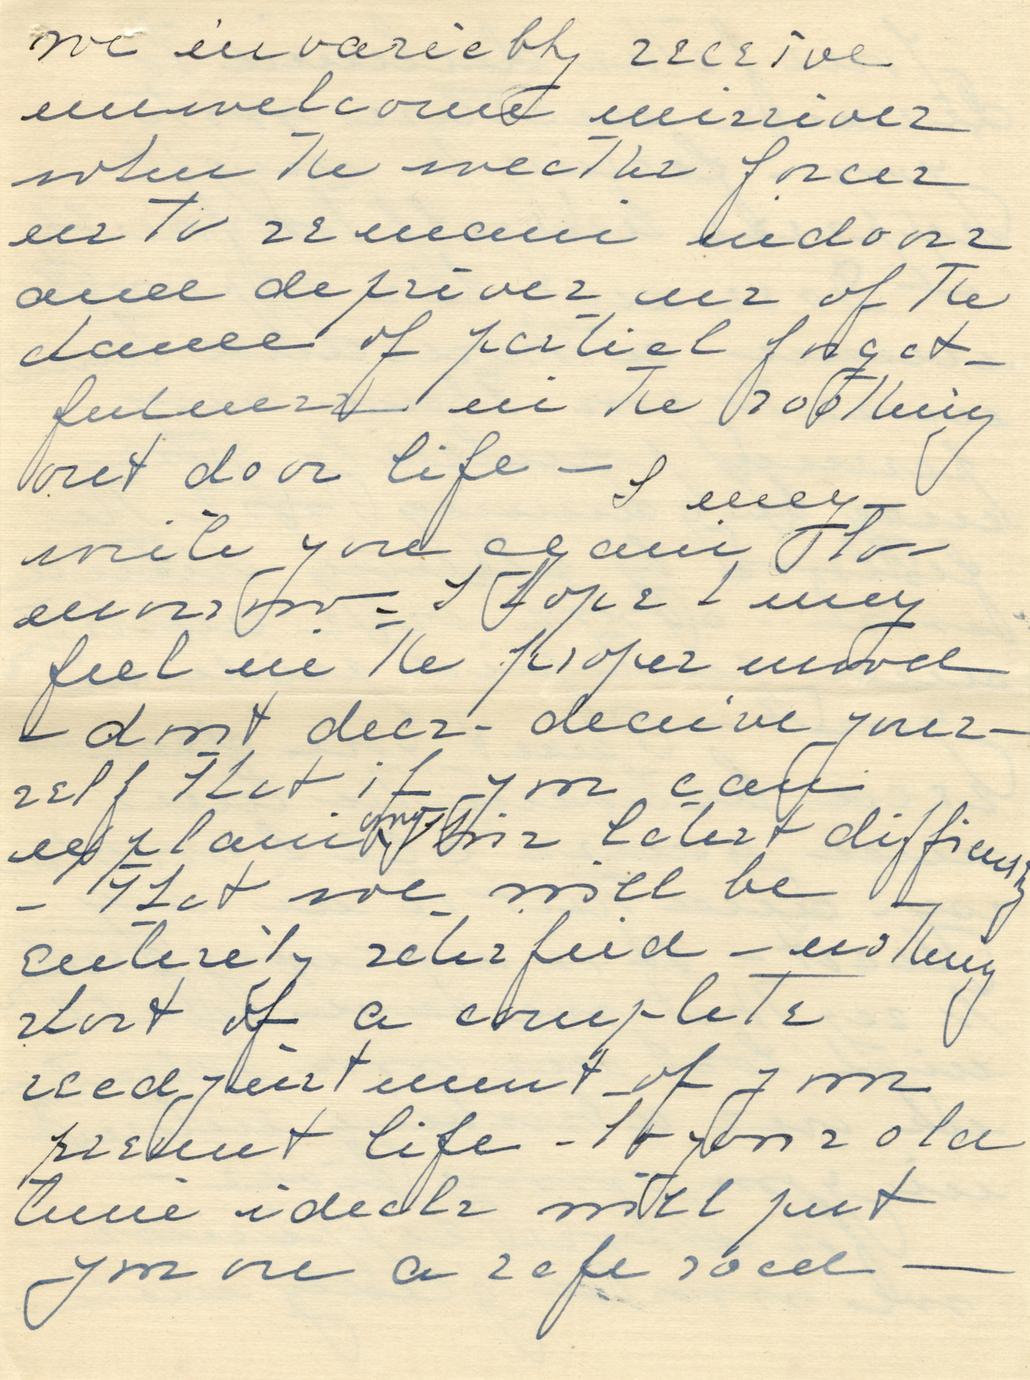 we invariably receive
unwelcome missives
when the weather forces
us to remain indoors
and deprives us of the
chance of partial forget-
fulness in the soothing
out door life – I may
write you again to-
morrow = I hope I may
feel in the proper mood
– dont dece- deceive your-
self that if you can
explain away this latest difficulty
– that we will be
entirely satisfied – nothing
short of a complete
readjustment of your
present life – to your old
time ideals will put
you on a safe road —